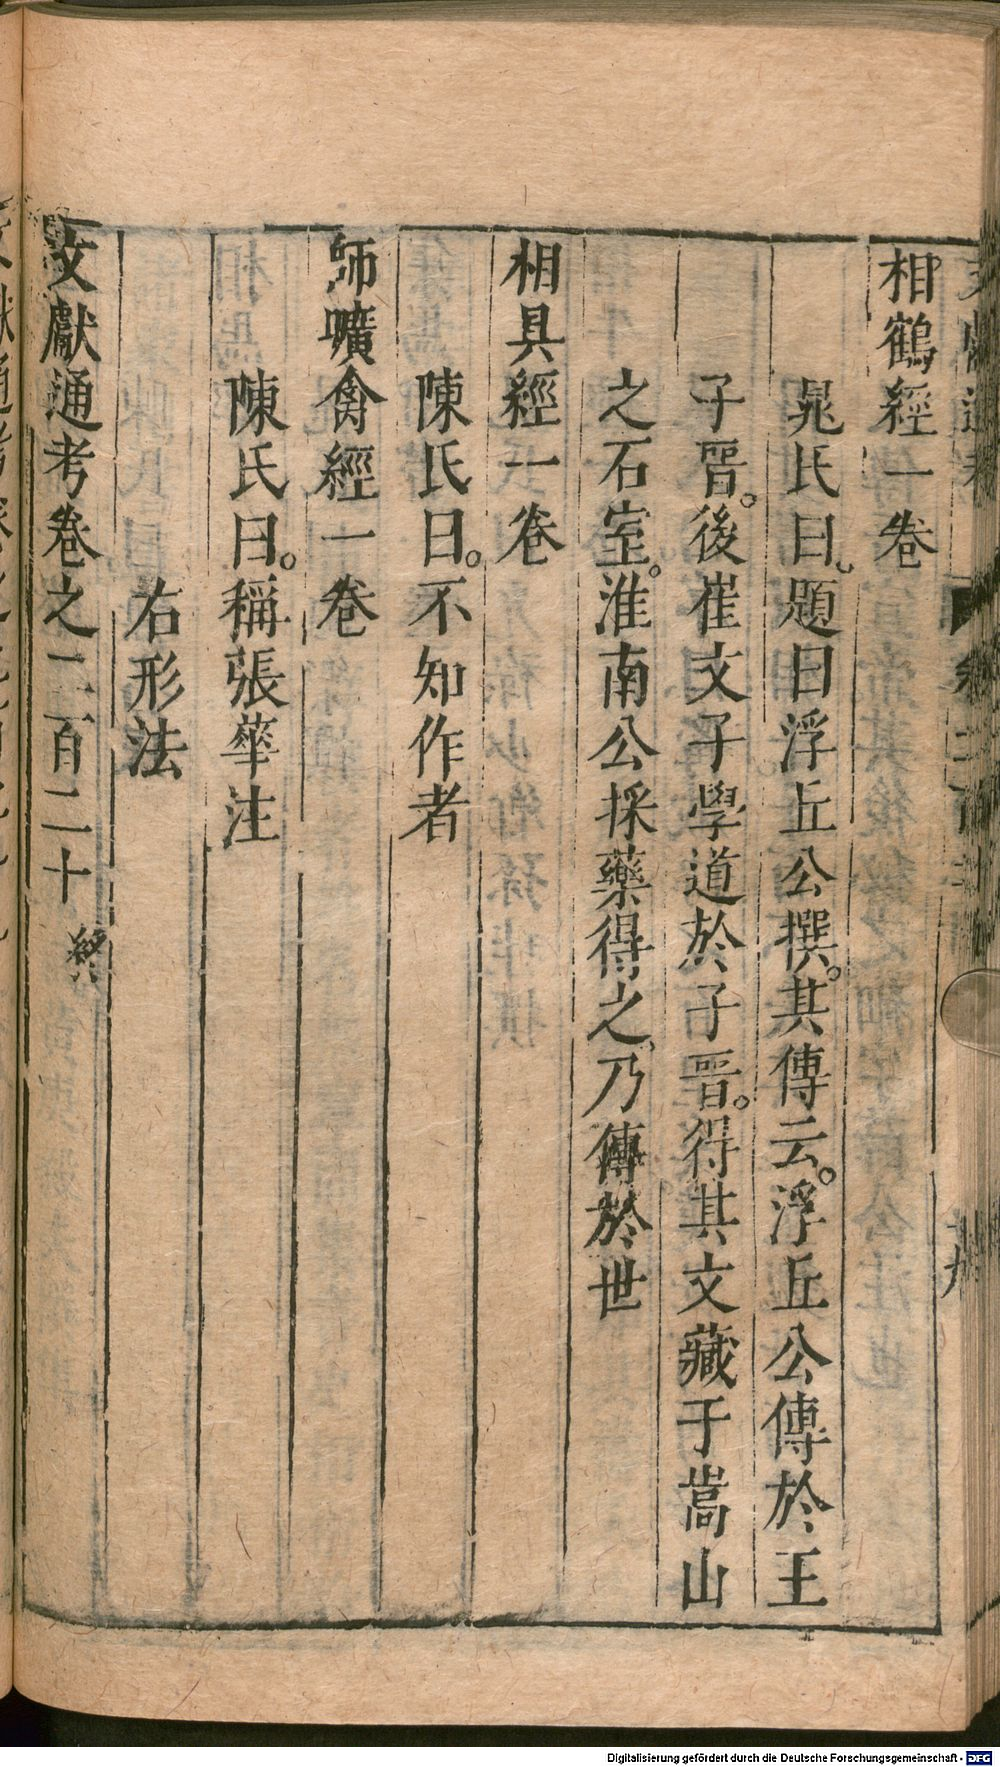 相鶴經一卷
晁氏曰題曰浮丘公撰。其傳云。浮丘公傳於王
子晋。後崔文子學道於子晋。得其文藏于嵩山
之石室。淮南公採藥得之、乃傳於世
相具經一卷
陳氏曰。不知作者
師曠禽經一卷
陳氏曰。稱張華注
右形法
文獻通考卷之二百二十 終
Digitalisierung gefördert durch die Deutsche Forschungsgemeinschaft - DFG